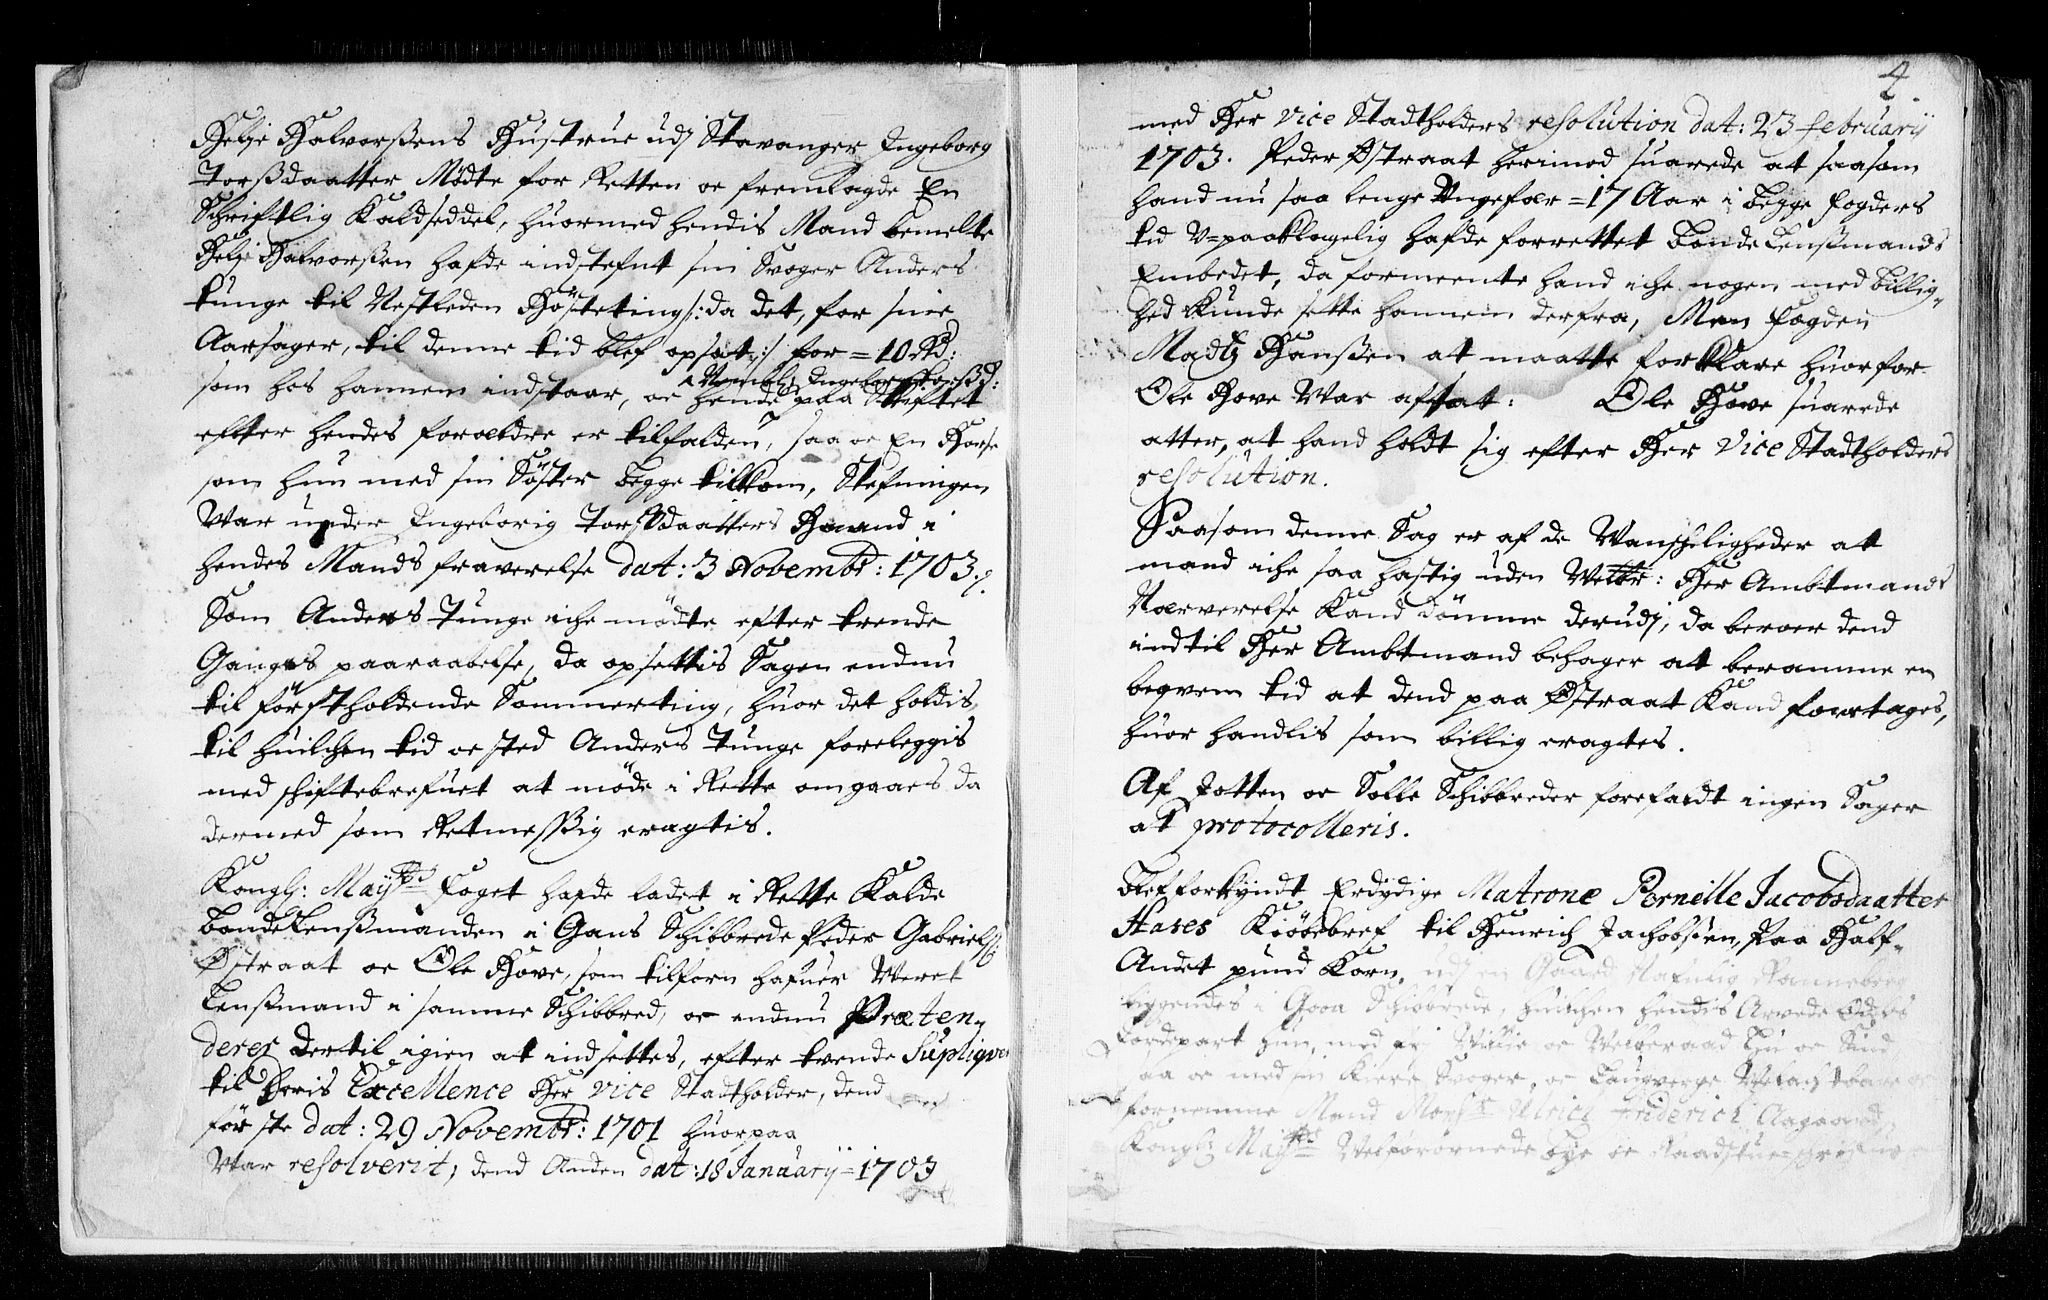 Helje Halvorßens Hustrue udj Stavanger Ingeborg
Torßdaatter Mødte for Retten oc fremlagde En
Schriftlig Kaldseddel, huormed hendis Mand bemelte
Helje Halvorßen hafde indstefnt sin Svoger Anders
Tunge til Nestleden Høsteting /: da det, for sine
Aarsager, til denne tid blef opsat :/ for = 10 Rd:
som hos hannem indstaar, oc hende paa Skiftet
efter hendes forældre er tilfalden, saa oc En Horse
som hun med sin Søster begge tilkom, Stefningen
War under Ingeborig Torßdaatters Haand i
hendes Mands fraverelse dat: 3 Novembr: 1703.
Som Anders Tunge iche mødte efter trende
Ganges paaraabelse, da opsettis Sagen endnu
til førstholdende Sommerting, huor det holdis,
til huilchen tid oc sted Anders Tunge foreleggis
med skiftebrefuet at møde i Rette omgaaes da
dermed som Retmessig eragtis.
Kongl: Mayts Foget hafde ladet i Rette Kalde
bondeLenßmanden i Gans Schibbrede Peder Gabrielß:
Østraat oc Ole Hove, som tilforn hafuer Weret
Lenßmand i samme Schibbred, oc endnu Præten-
derer dertil igien at indsettes, efter tvende Supliqver
til Hans Excellence Her Vice Stadtholder, dend
første dat: 29 Novembr: 1701 huorpaa
War resolverit, dend Anden dat: 18 Januarij = 1703
4
med Her Vice Stadtholders resolution dat: 23 februarij
1703. Peder Østraat herimod suarede at saasom
hand nu saa lenge Ungefær = 17 Aar i begge fogders
tid U=paaklagelig hafde forrettet bondeLenßmands
Embedet, da formeente hand iche nogen med billig-
hed kunde sette hannem derfra, Men fogden
Madtz Hanßen at maatte forklare huorfor
Ole Hove War afsat: Ole Hove suarede
atter, at hand holdt sig efter Her Vice Stadtholders
resolution.
Saasom denne Sag er af de Wanskeligheder at
mand iche saa hastig uden Welbr: Her Ambtmands
Nærverelse Kand dømme derudj, da beroer dend
indtil Her Ambtmand behager at beramme en
beqvem tid at dend paa Østraat Kand foretages,
huor handlis som billig eragtes.
Af Jotten oc Solle Schibbreder forefaldt ingen Sager
at protocolleris.
Blef forkyndt Erdydige Matrone Pernille Jacobsdaatter
Hases Kiøbebref til Henrich Jachobsen, Paa Half-
Andet pund Korn, udj en Gaard Nafnlig Ranneberg
liggendes i Gooa Schibbrede, huilchen hendis Arvede Odels
Jordepart hun, med frj Willie oc
oc med sin Kiere Svoger, oc Laugverge
fornemme Mand Monsr Ulrich Friderich Aagaard,
Kongl Mayts Welforordnede Bye oc Raadstue-